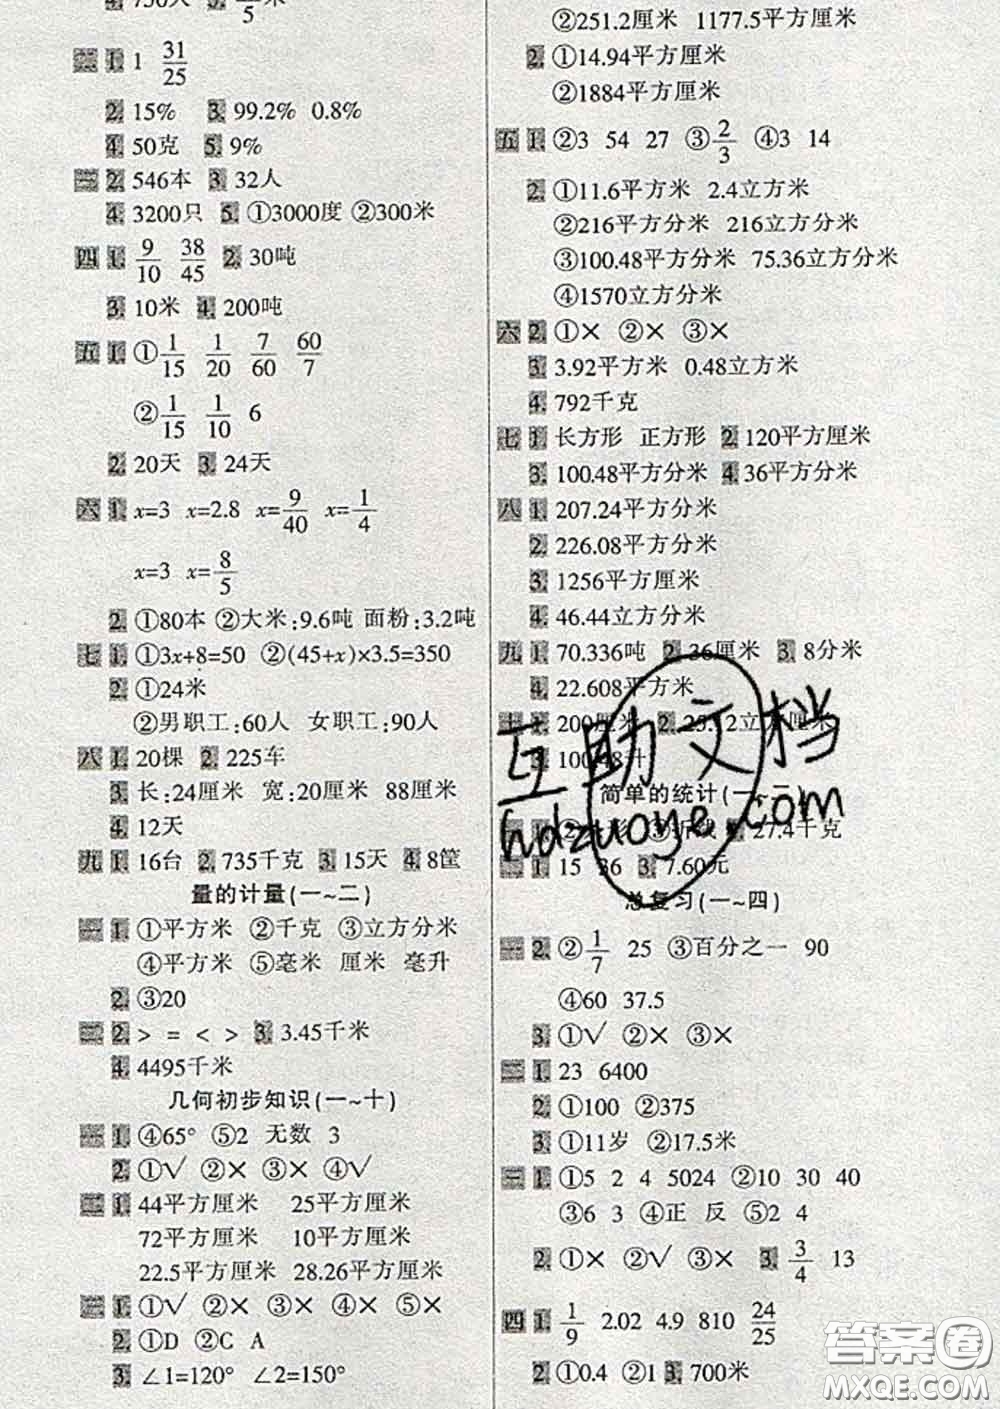 750人 /5米
二 1. 1 31/25
2. 15% 3. 99.2% 0.8%
4. 50克 5. 9%
三 2. 546本 3. 32人
4. 3200只 5. ①3000度 ②300米
四 1. 9/10 38/45 2. 30吨
3. 10米 4. 200吨
五 1. ①1/15 1/20 7/60 60/7
②1/15 1/10 6
2. 20天 3. 24天
六 1. x=3 x=2.8 x=9/40 x=1/4
x=3 x=8/5
2. ①80本 ②大米:9.6吨 面粉:3.2吨
七 1. ①3x+8=50 ②(45+x)×3.5=350
2. ①24米
②男职工:60人 女职工:90人
八 1. 20棵 2. 225车
3. 长:24厘米 宽:20厘米 88厘米
4. 12天
九 1. 16台 2. 735千克 3. 15天 4. 8筐
量的计量(一~二)
一 1. ①平方米 ②千克 ③立方分米
④平方米 ⑤毫米 厘米 毫升
2. ③20
二 2. > = < > 3. 3.45千米
4. 4495千米
几何初步知识(一~十)
一 1. ④65° ⑤2 无数 3
2. ①√ ②× ③× ④√
二 1. 44平方厘米 25平方厘米
72平方厘米 10平方厘米
22.5平方厘米 28.26平方厘米
三 1. ①√ ②× ③× ④× ⑤×
2. ①D ②C A
3. ∠1=120° ∠2=150°
②251.2厘米 1177.5平方厘米
2. ①14.94平方厘米
②1884平方厘米
五 1. ②3 54 27 ③2/3 ④3 14
2. ①11.6平方米 2.4立方米
②216平方分米 216立方分米
③100.48平方分米 75.36立方分米
④1570立方分米
六 2. ①× ②× ③×
3. 3.92平方米 0.48立方米
4. 792千克
七 1. 长方形 正方形 2. 120平方厘米
3. 100.48平方分米 4. 36平方分米
八 1. 207.24平方分米
2. 226.08平方分米
3. 1256平方厘米
4. 46.44立方分米
九 1. 70.336吨 2. 36厘米 3. 8分米
4. 22.608平方米
十 1. 200厘米 2. 25.12立方厘米
3. 100.48升
简单的统计(一~二)
一 1. ③折线 27.4千克
二 1. 15 36 3. 7.60元
总复习(一~四)
一 2. ②1/7 25 ③百分之一 90
④60 37.5
3. ①√ ②× ③×
二 1. 23 6400
2. ①100 ②375
3. ①11岁 ②17.5米
三 1. ①5 2 4 5024 ②10 30 40
③6 3 ④正 反 ⑤2 4
2. ①× ②√ ③× 3. 3/4 13
四 1. 1/9 2.02 4.9 810 24/25
2. ①0.4 ②1 3. 700米
互助文档
hdzuoye.com
答案圈
MXQE.COM